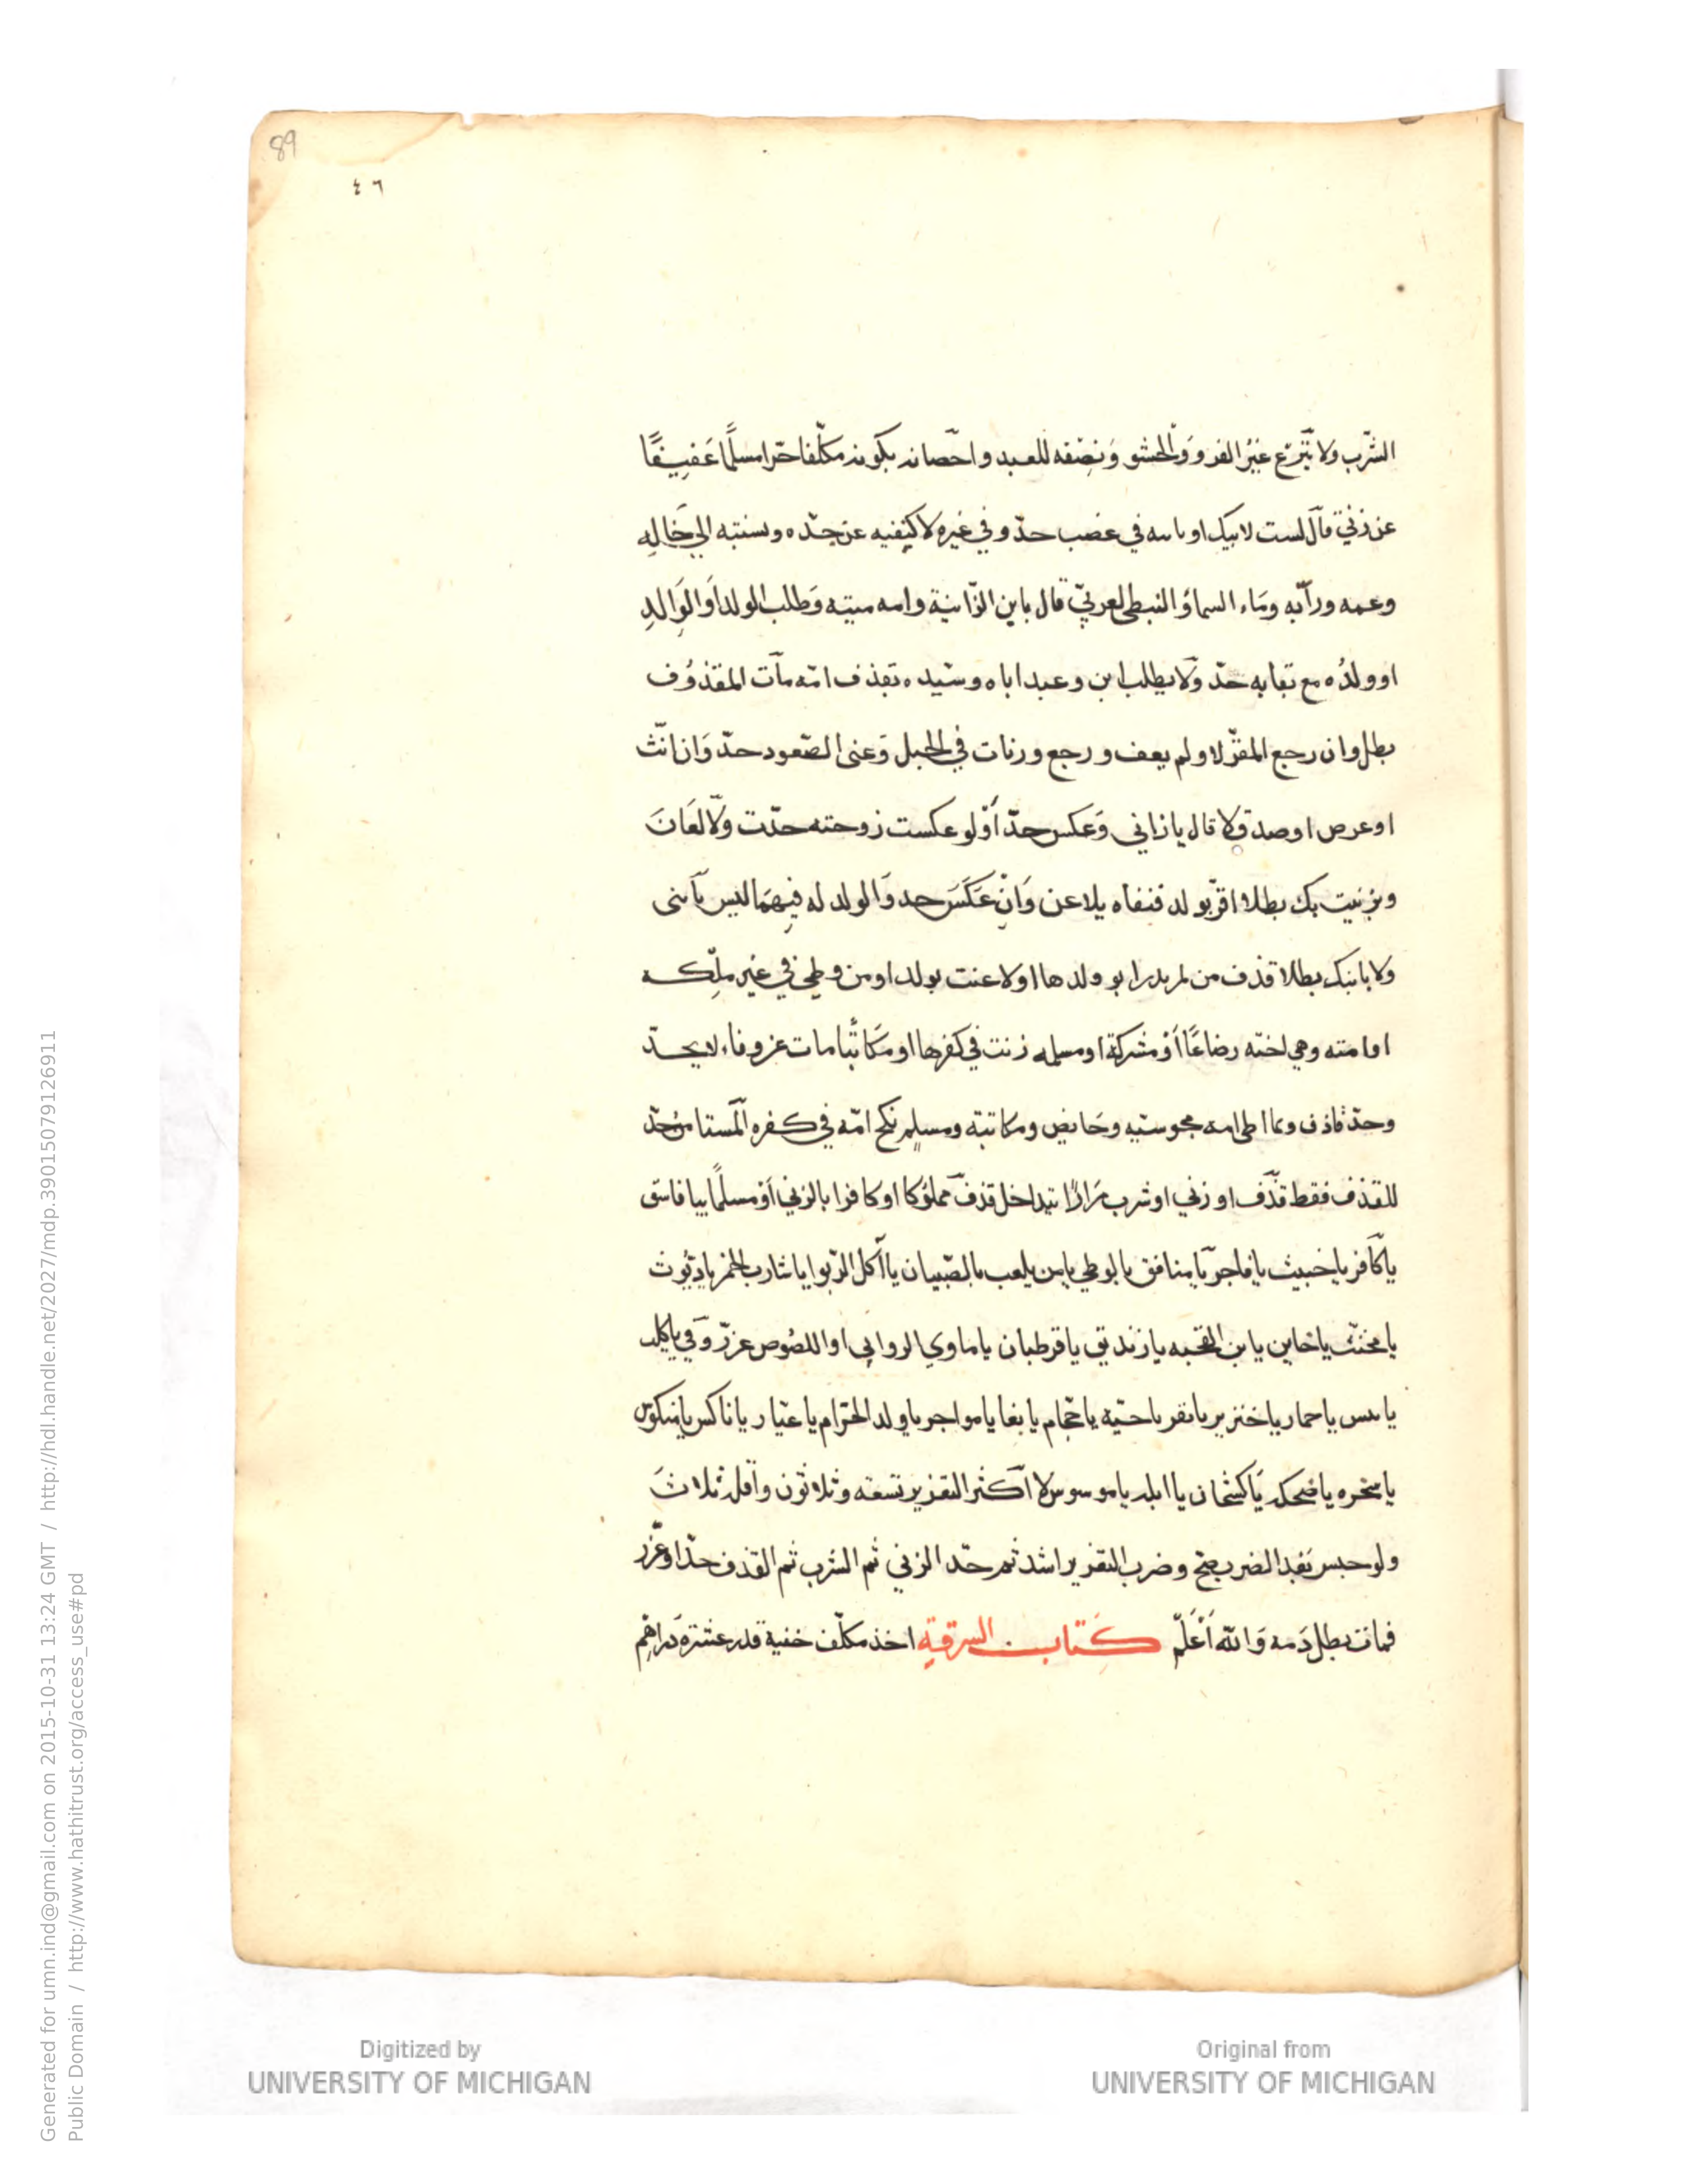 89
٤٦
الشرب ولا ينزع غير الفرو والحشو ونصفه للعبد واحصانه بكونه مكلفا حرا مسلما عفيفا
عن زنى قال لست لابيك او بابيه في غضب حد وفي غيره لا كنفيه عن جده ونسبته الى خاله
وعمه ورابه وماء السماء والنبطى لعربي قال يابن الزانية وامه ميتة وطلب الولد او الوالد
او ولده مع بقايه حد ولا يطلب ابن وعبد اباه وسيده بقذف امه مات المقذوف
بطل وان رجع المقر لا ولم يعف ورجع وزنات في الجبل وعنى الصعود حد وان انث
او عرص او صدق لا قال يا زاني وعكس حد ا ولو عكست زوجته حدت ولا لعان
وبزنيت بك بطلا اقر بولد فنفاه يلاعن وان عكس حد والولد له فيهما ليس بابنى
ولا بابنك بطلا قذف من لم يدر ابو ولدها او لاعنت بولد او من وطى في غير ملكه
او امته وهي اخته رضاعا او مشركة او مسلمه زنت في كفرها او مكاتبا مات عن وفاء لا يحد
وحد قاذف واطى امه مجوسيه وحايض ومكاتبة ومسلم نكح امه في كفره المستامن حد
للقذف فقط قذف او زنى او شرب مرارا تيداخل قذف مملوكا او كافرا بالزنى او مسلما بيا فاسق
يا كافر يا خبيث يا فاجر يا منافق يا لوطي يا من يلعب بالصبيان يا اكل الربوا يا شارب الخمر يا ديوث
يا مخنث يا خاين يابن القحبه يا زنديق يا قرطبان يا ماوي الزواني او اللصوص عزر وفي يا كلب
يا تيس يا حمار يا خنزير يا بقر يا حيه يا حجام يا بغا يا مواجر يا ولد الحرام يا عيار يا ناكس يا منكوس
يا سخره يا ضحكه يا كشخان يا ابله يا موسوس لا اكثر التعزير تسعة وثلاثون واقله ثلاث
ولو حبس بعد الضرب صح وضرب التعزير اشد ثم حد الزنى ثم الشرب ثم القذف حد او عزر
فمات بطل دمه والله اعلم كتاب السرقة اخذ مكلف خفية قدر عشرة دراهم
Digitized by
UNIVERSITY OF MICHIGAN
Original from
UNIVERSITY OF MICHIGAN
Generated for umn.ind@gmail.com on 2015-10-31 13:24 GMT / http://hdl.handle.net/2027/mdp.39015079126911
Public Domain / http://www.hathitrust.org/access_use#pd